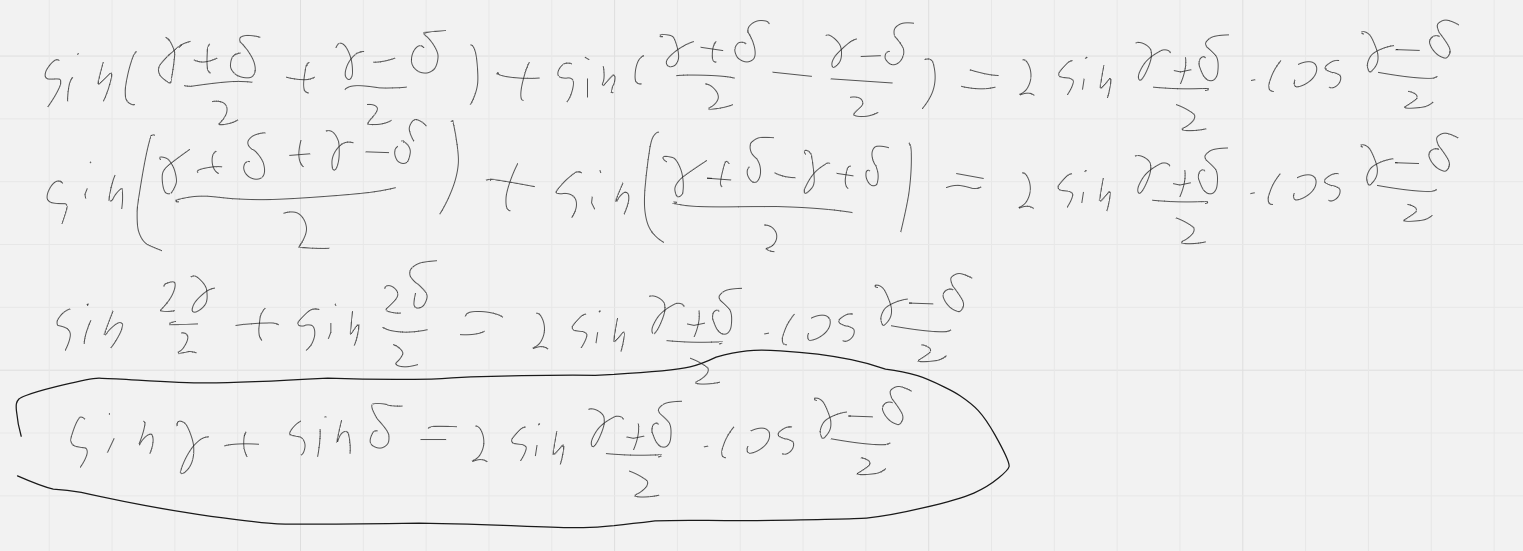 sin(γ+δ/2 + γ−δ/2) + sin(γ+δ/2 − γ−δ/2) = 2 sin γ+δ/2 · cos γ−δ/2
sin(γ+δ+γ−δ/2) + sin(γ+δ−γ+δ/2) = 2 sin γ+δ/2 · cos γ−δ/2
sin 2γ/2 + sin 2δ/2 = 2 sin γ+δ/2 · cos γ−δ/2
sin γ + sin δ = 2 sin γ+δ/2 · cos γ−δ/2